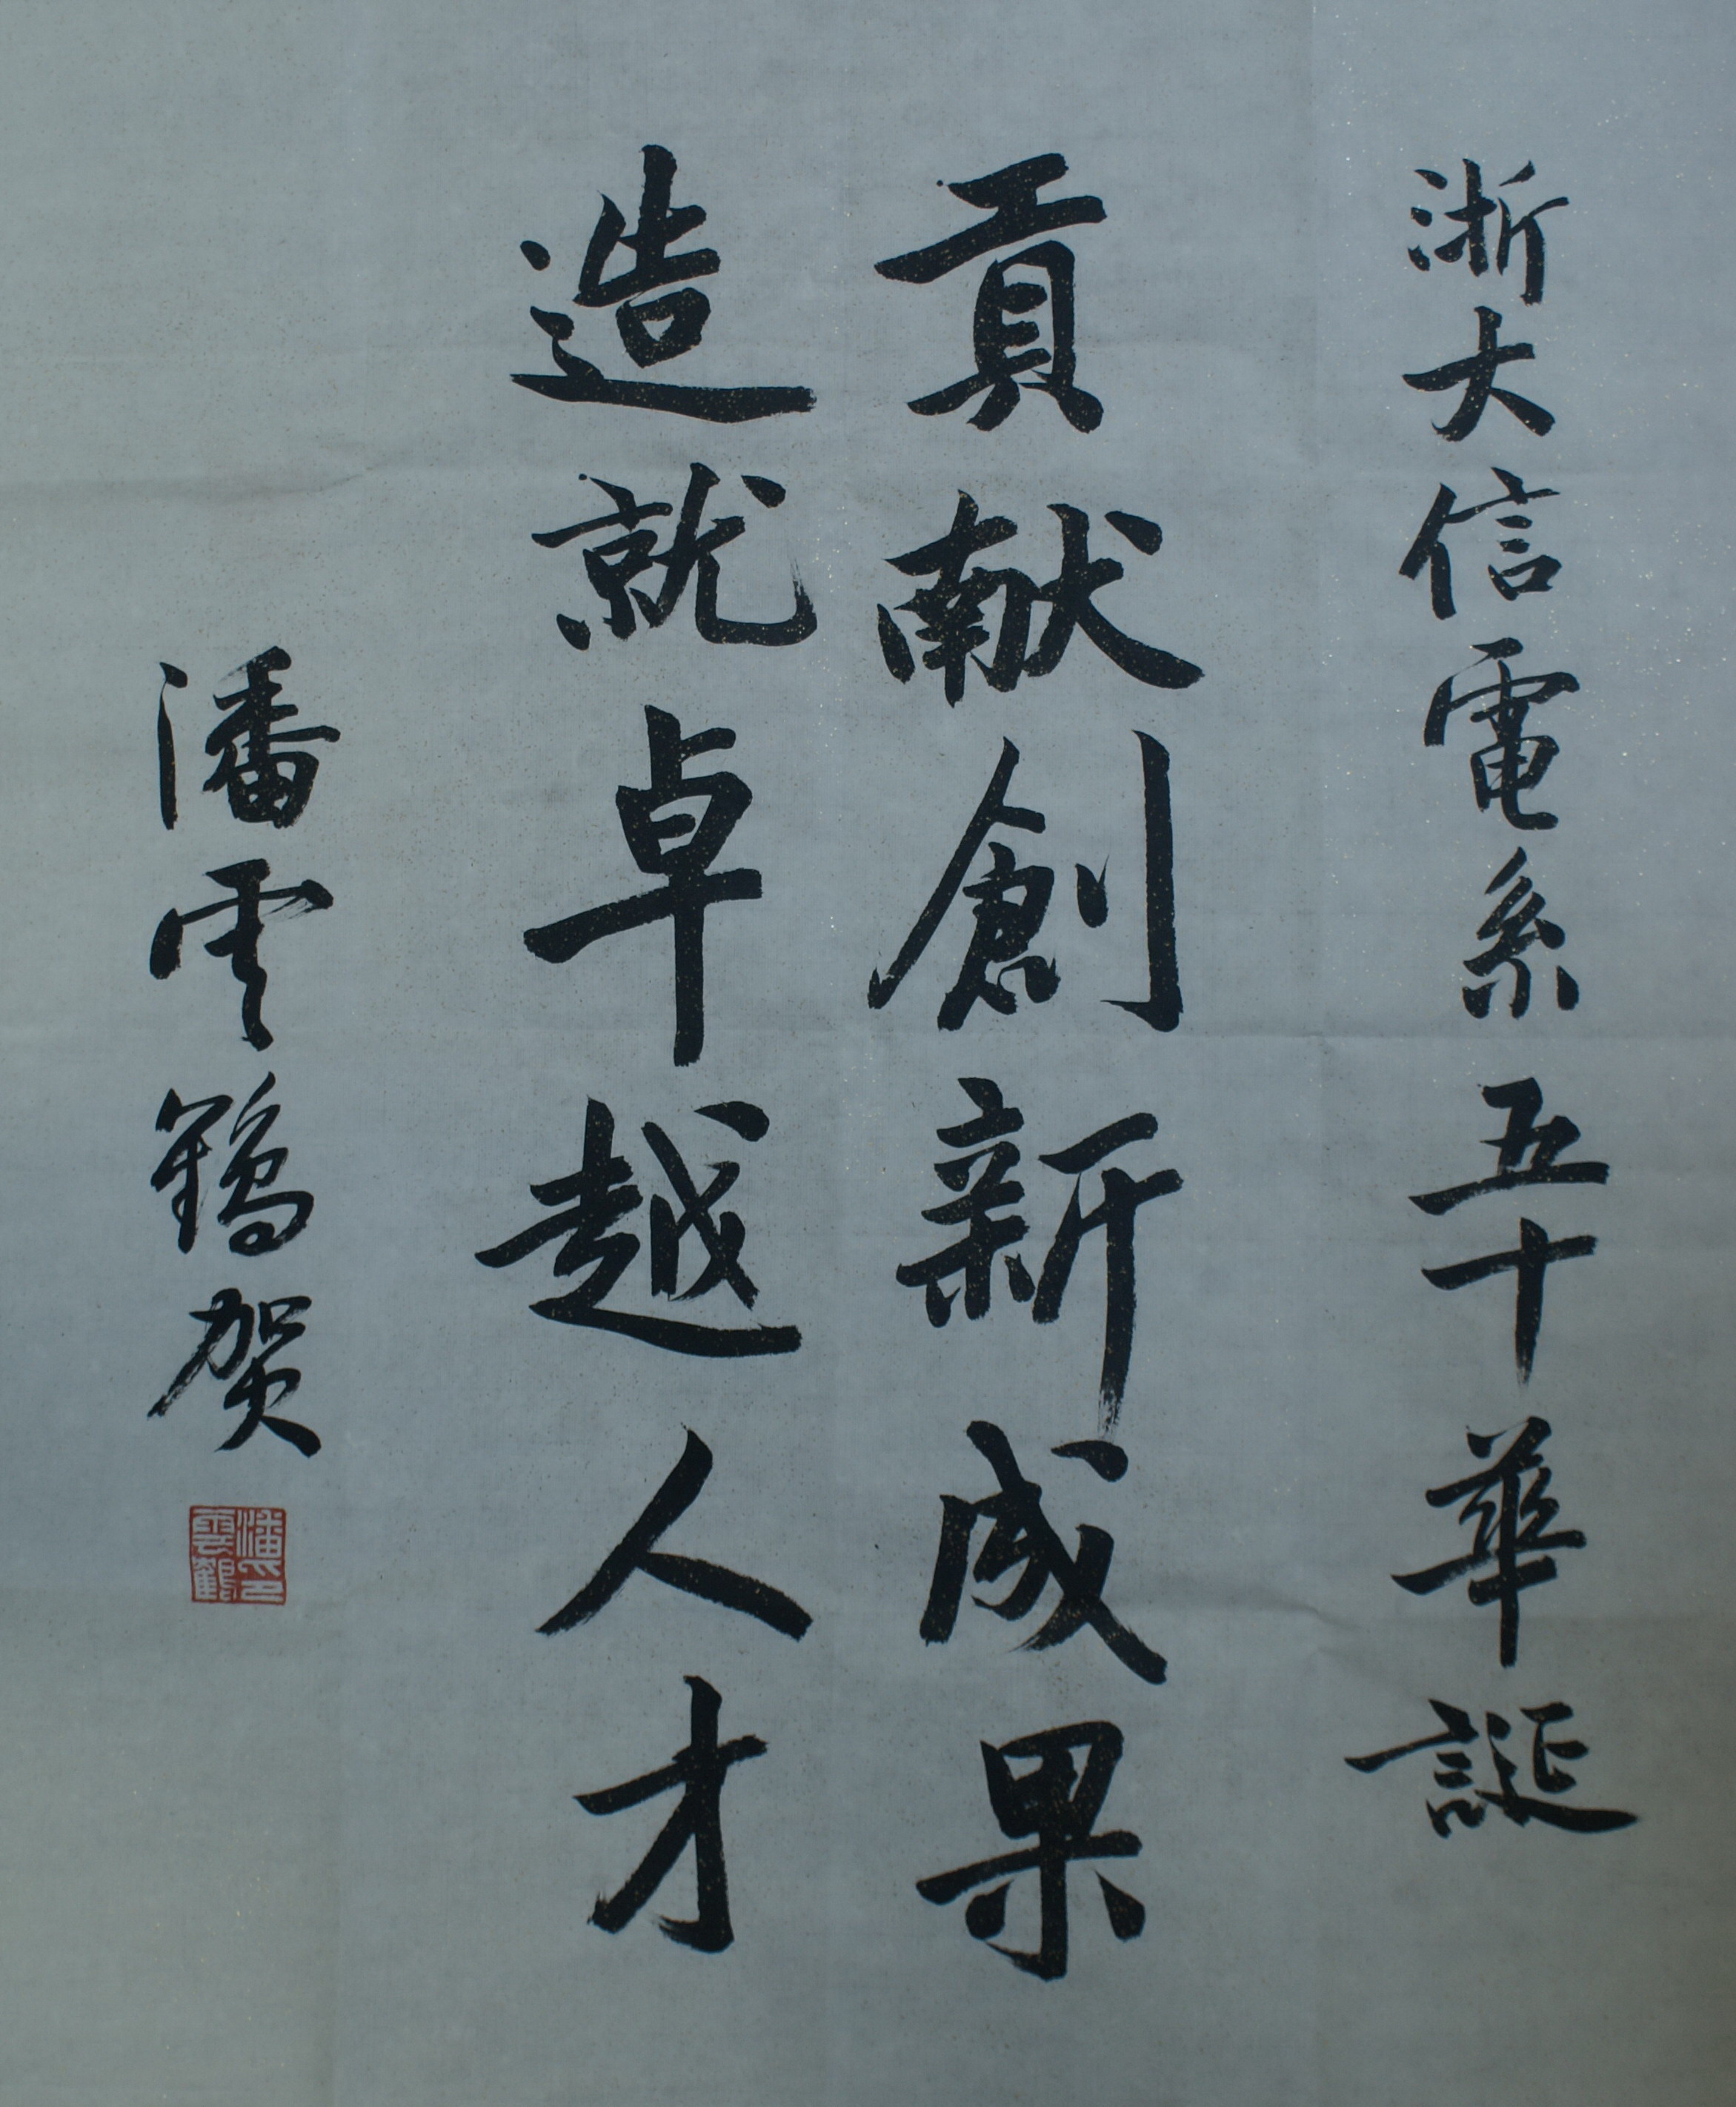 浙大信電系五十華誕
貢献創新成果
造就卓越人才
潘雲鶴贺
潘雲鶴印